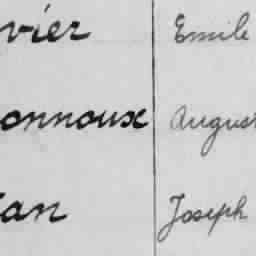 vier Emile
onnoux August
ian Joseph